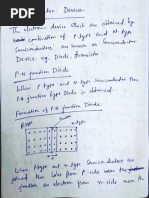 Devices
The electronic device which are obtained by
the combination of P type and N type
Semiconductors are known as Semiconductor
Device. eg. Diode, transistor
P-N junction Diode
When P type and N type
PN junction type Diode is obtained.
Formation of PN junction Diode.
When P type and n-type Semiconductors are
joined the holes from P-side near the
junction an electron from n side near the